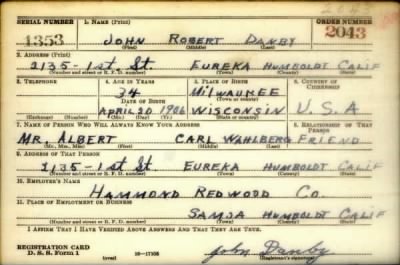 2043
SERIAL NUMBER 1. NAME (Print) ORDER NUMBER
1353 JOHN ROBERT DANBY 2043
(First) (Middle) (Last)
2. ADDRESS (Print)
2135-1st. St. EUREKA HUMBOLDT CALIF
(Number and street or R. F. D. number) (Town) (County) (State)
3. TELEPHONE 4. AGE IN YEARS 5. PLACE OF BIRTH 6. COUNTRY OF CITIZENSHIP
34 MILWAUKEE
DATE OF BIRTH (Town or county)
APRIL 20 1906 WISCONSIN U.S.A
(Exchange) (Number) (Mo.) (Day) (Yr.) (State or country)
7. NAME OF PERSON WHO WILL ALWAYS KNOW YOUR ADDRESS 8. RELATIONSHIP OF THAT PERSON
MR. ALBERT CARL WAHLBERG FRIEND
(Mr., Mrs., Miss) (First) (Middle) (Last)
9. ADDRESS OF THAT PERSON
2135-1st St. EUREKA HUMBOLDT CALIF
(Number and street or R. F. D. number) (Town) (County) (State)
10. EMPLOYER'S NAME
HAMMOND REDWOOD CO.
11. PLACE OF EMPLOYMENT OR BUSINESS
SAMOA HUMBOLDT CALIF
(Number and street or R. F. D. number) (Town) (County) (State)
I AFFIRM THAT I HAVE VERIFIED ABOVE ANSWERS AND THAT THEY ARE TRUE.
REGISTRATION CARD
D. S. S. Form 1 (over) 16-17105 John Danby
(Registrant's signature)